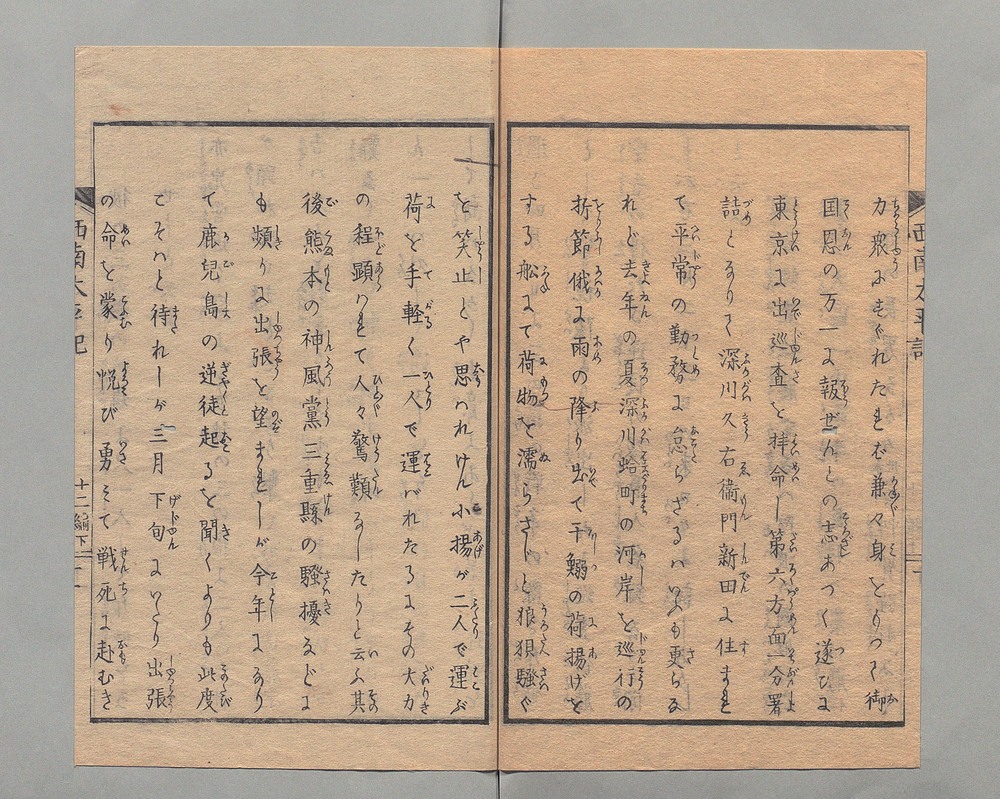 力衆にすぐれたれば兼々身をもつて御
国恩の万一に報ぜんとの志あつく遂ひに
東京に出巡査を拝命し第六方面一分署
詰となりて深川久右衛門新田に住まゐ
て平常の勤務に怠らざるはいふも更なる
れど去年の夏深川蛤町の河岸を巡行の
折節俄に雨の降り出て干鰯の荷揚げを
する船にて荷物を濡らさじと狼狽騒ぐ
を笑止とや思はれけん小揚が二人で運ぶ
荷を手軽く一人で運ばれたるにその大力
の程顕はれて人々驚歎なしたりと云ふ其
後熊本の神風黨三重縣の騒擾などに
も頻りに出張を望まれしが今年になり
て鹿兒島の逆徒起ると聞くよりも此度
こそはと待れしが三月下旬にいたり出張
の命を蒙り悦び勇みて戦死に赴むき
西南太平記
十二編下